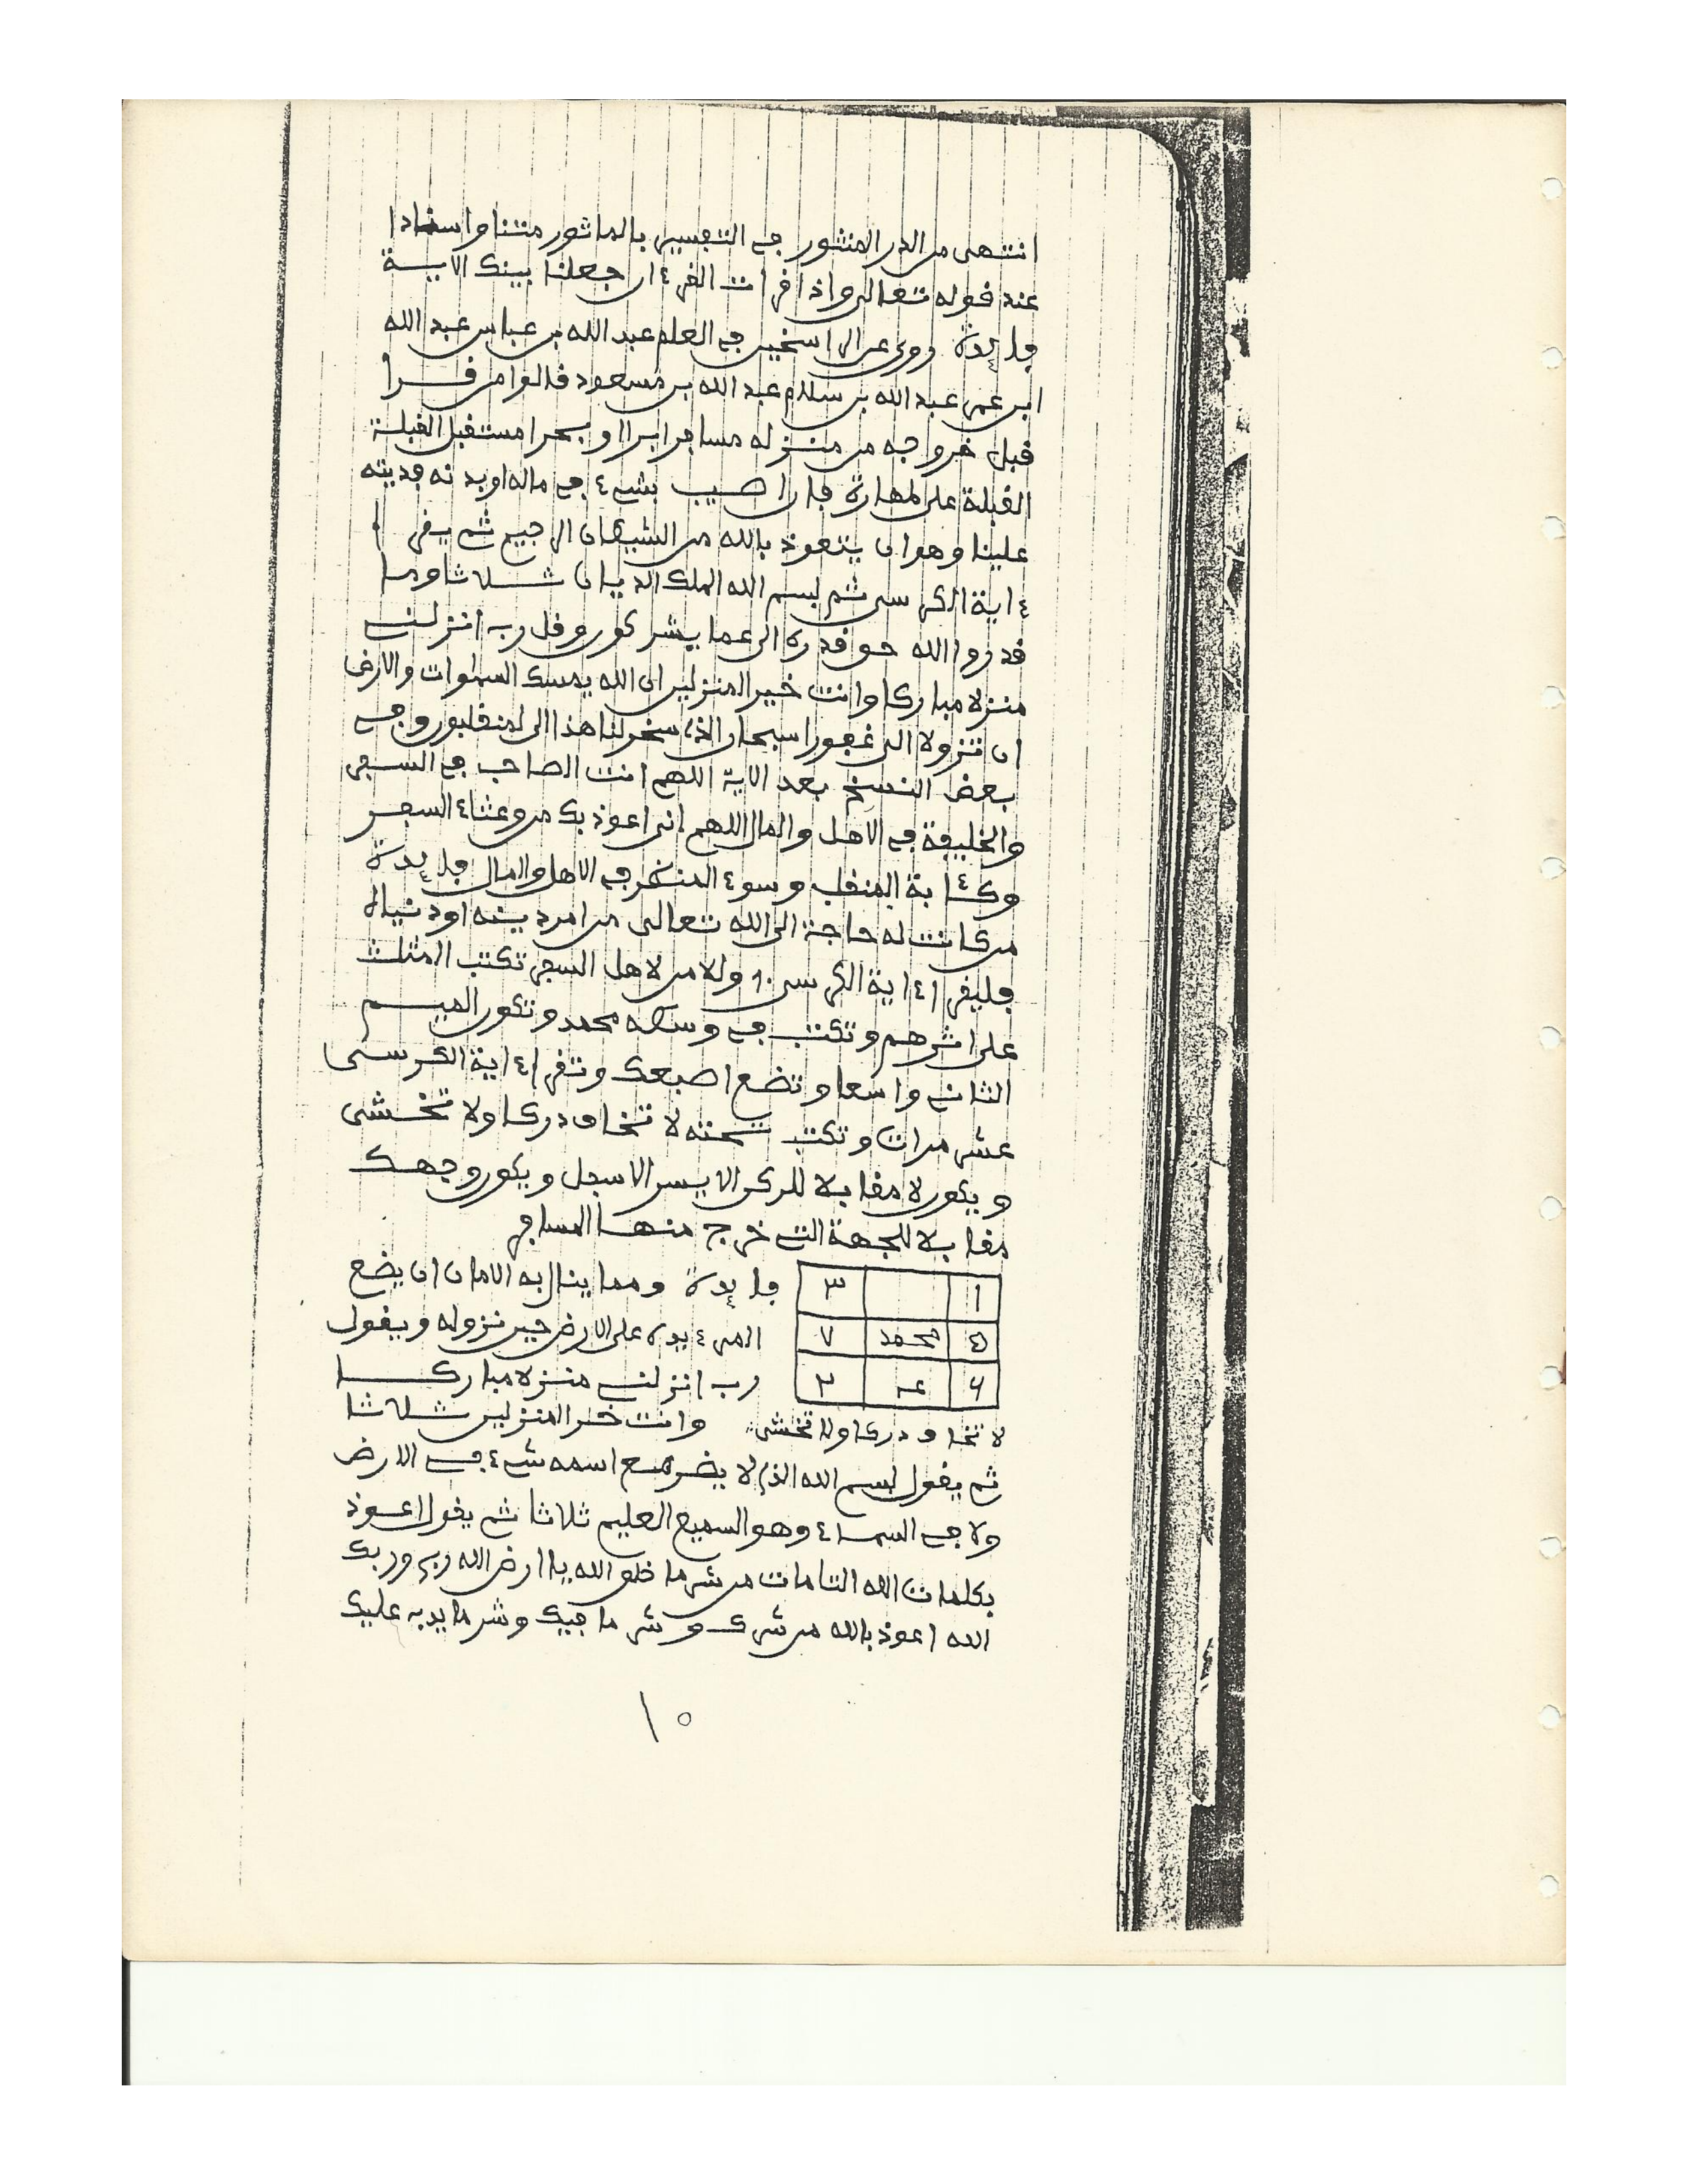 انتهى من الدر المنثور في التفسير بالماثور متنا واسنادا
عند قوله تعالى واذا قرات القرءان جعلنا بينك الاية
فايدة روي عن الراسخين في العلم عبد الله بن عباس عبد الله
ابن عمر عبد الله بن سلام عبد الله بن مسعود قالوا من قرا
قبل خروجه من منزله مسافرا برا او بحرا مستقبل القبلة
القبلة على طهارة فان اصيب بشيء في ماله او بدنه فديته
علينا وهو ان يتعوذ بالله من الشيطان الرجيم ثم يقرا
ءاية الكرسي ثم بسم الله الملك الديان ثلاثا وما
قدروا الله حق قدره الى عما يشركون وقل رب انزلني
منزلا مباركا وانت خير المنزلين ان الله يمسك السموات والارض
ان تزولا الى غفورا سبحان الذي سخر لنا هذا الى لمنقلبون وفي
بعض النسخ بعد الاية اللهم انت الصاحب في السفر
والخليفة في الاهل والمال اللهم اني اعوذ بك من وعثاء السفر
وكئابة المنقلب وسوء المنظر في الاهل والمال فايدة
من كانت له حاجة الى الله تعالى من امر دينه او دنياه
فليقرا ءاية الكرسي ١٠ وللامن لاهل السفر تكتب المثلث
على اثرهم وتكتب في وسطه محمد وتكون الميم
الثاني واسعا وتضع اصبعك وتقرا ءاية الكرسي
عشر مرات وتكتب تحته لا تخاف دركا ولا تخشى
ويكون لا مقابلا للركن الايسر الاسفل ويكون وجهك
مقابلا للجهة التي خرج منها المسافر
١ ٣ فايدة ومما ينال به الامان ان يضع
محمد ٧ المرء يده على الارض حين نزوله ويقول
٦ ٢ رب انزلني منزلا مباركا
لا تخاف دركا ولا تخشى وانت خير المنزلين ثلاثا
ثم يقول بسم الله الذي لا يضر مع اسمه شيء في الارض
ولا في السماء وهو السميع العليم ثلاثا ثم يقول اعوذ
بكلمات الله التامات من شر ما خلق الله يا ارض الله ربي وربك
الله اعوذ بالله من شرك وشر ما فيك وشر ما يدب عليك
١٠